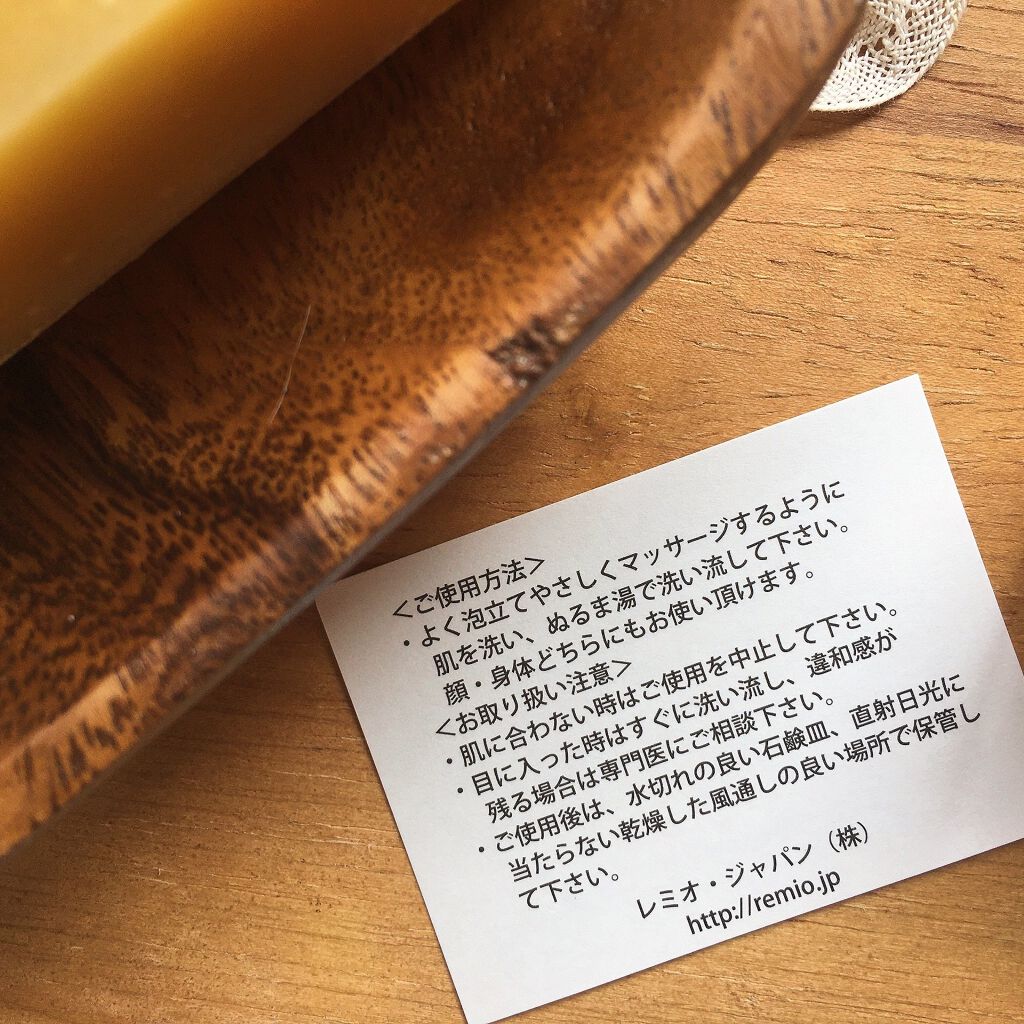 <ご使用方法>
・よく泡立てやさしくマッサージするように
肌を洗い、ぬるま湯で洗い流して下さい。
顔・身体どちらにもお使い頂けます。
<お取り扱い注意>
・肌に合わない時はご使用を中止して下さい。
・目に入った時はすぐに洗い流し、違和感が
残る場合は専門医にご相談下さい。
・ご使用後は、水切れの良い石鹸皿、直射日光に
当たらない乾燥した風通しの良い場所で保管し
て下さい。
レミオ・ジャパン（株）
http://remio.jp